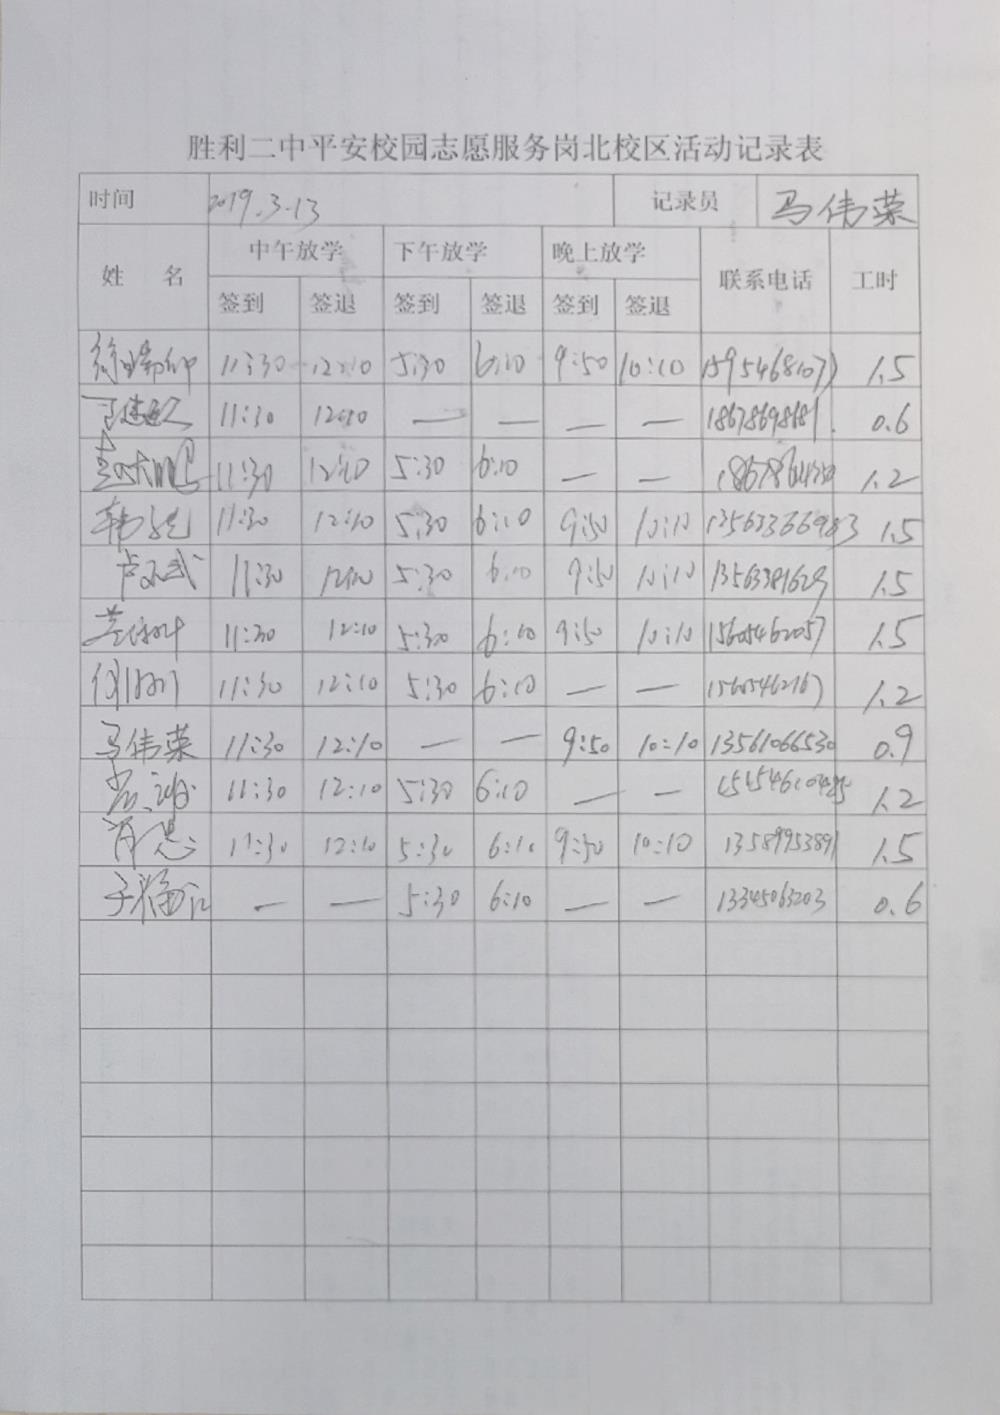 胜利二中平安校园志愿服务岗北校区活动记录表
时间 2019.3.13 记录员 马伟荣
姓 名 中午放学 下午放学 晚上放学 联系电话 工时
签到 签退 签到 签退 签到 签退
11:30 12:10 5:30 6:10 9:50 10:10 1.5
11:30 12:10 — — — — 18678698681 0.6
11:30 12:10 5:30 6:10 — — 1.2
11:30 12:10 5:30 6:10 9:50 10:10 13563366983 1.5
11:30 12:10 5:30 6:10 9:50 10:10 13563381629 1.5
11:30 12:10 5:30 6:10 9:50 10:10 15605462057 1.5
11:30 12:10 5:30 6:10 — — 15605462167 1.2
马伟荣 11:30 12:10 — — 9:50 10:10 13561066530 0.9
11:30 12:10 5:30 6:10 — — 1.2
11:30 12:10 5:30 6:10 9:50 10:10 13589953891 1.5
— — 5:30 6:10 — — 13345063203 0.6